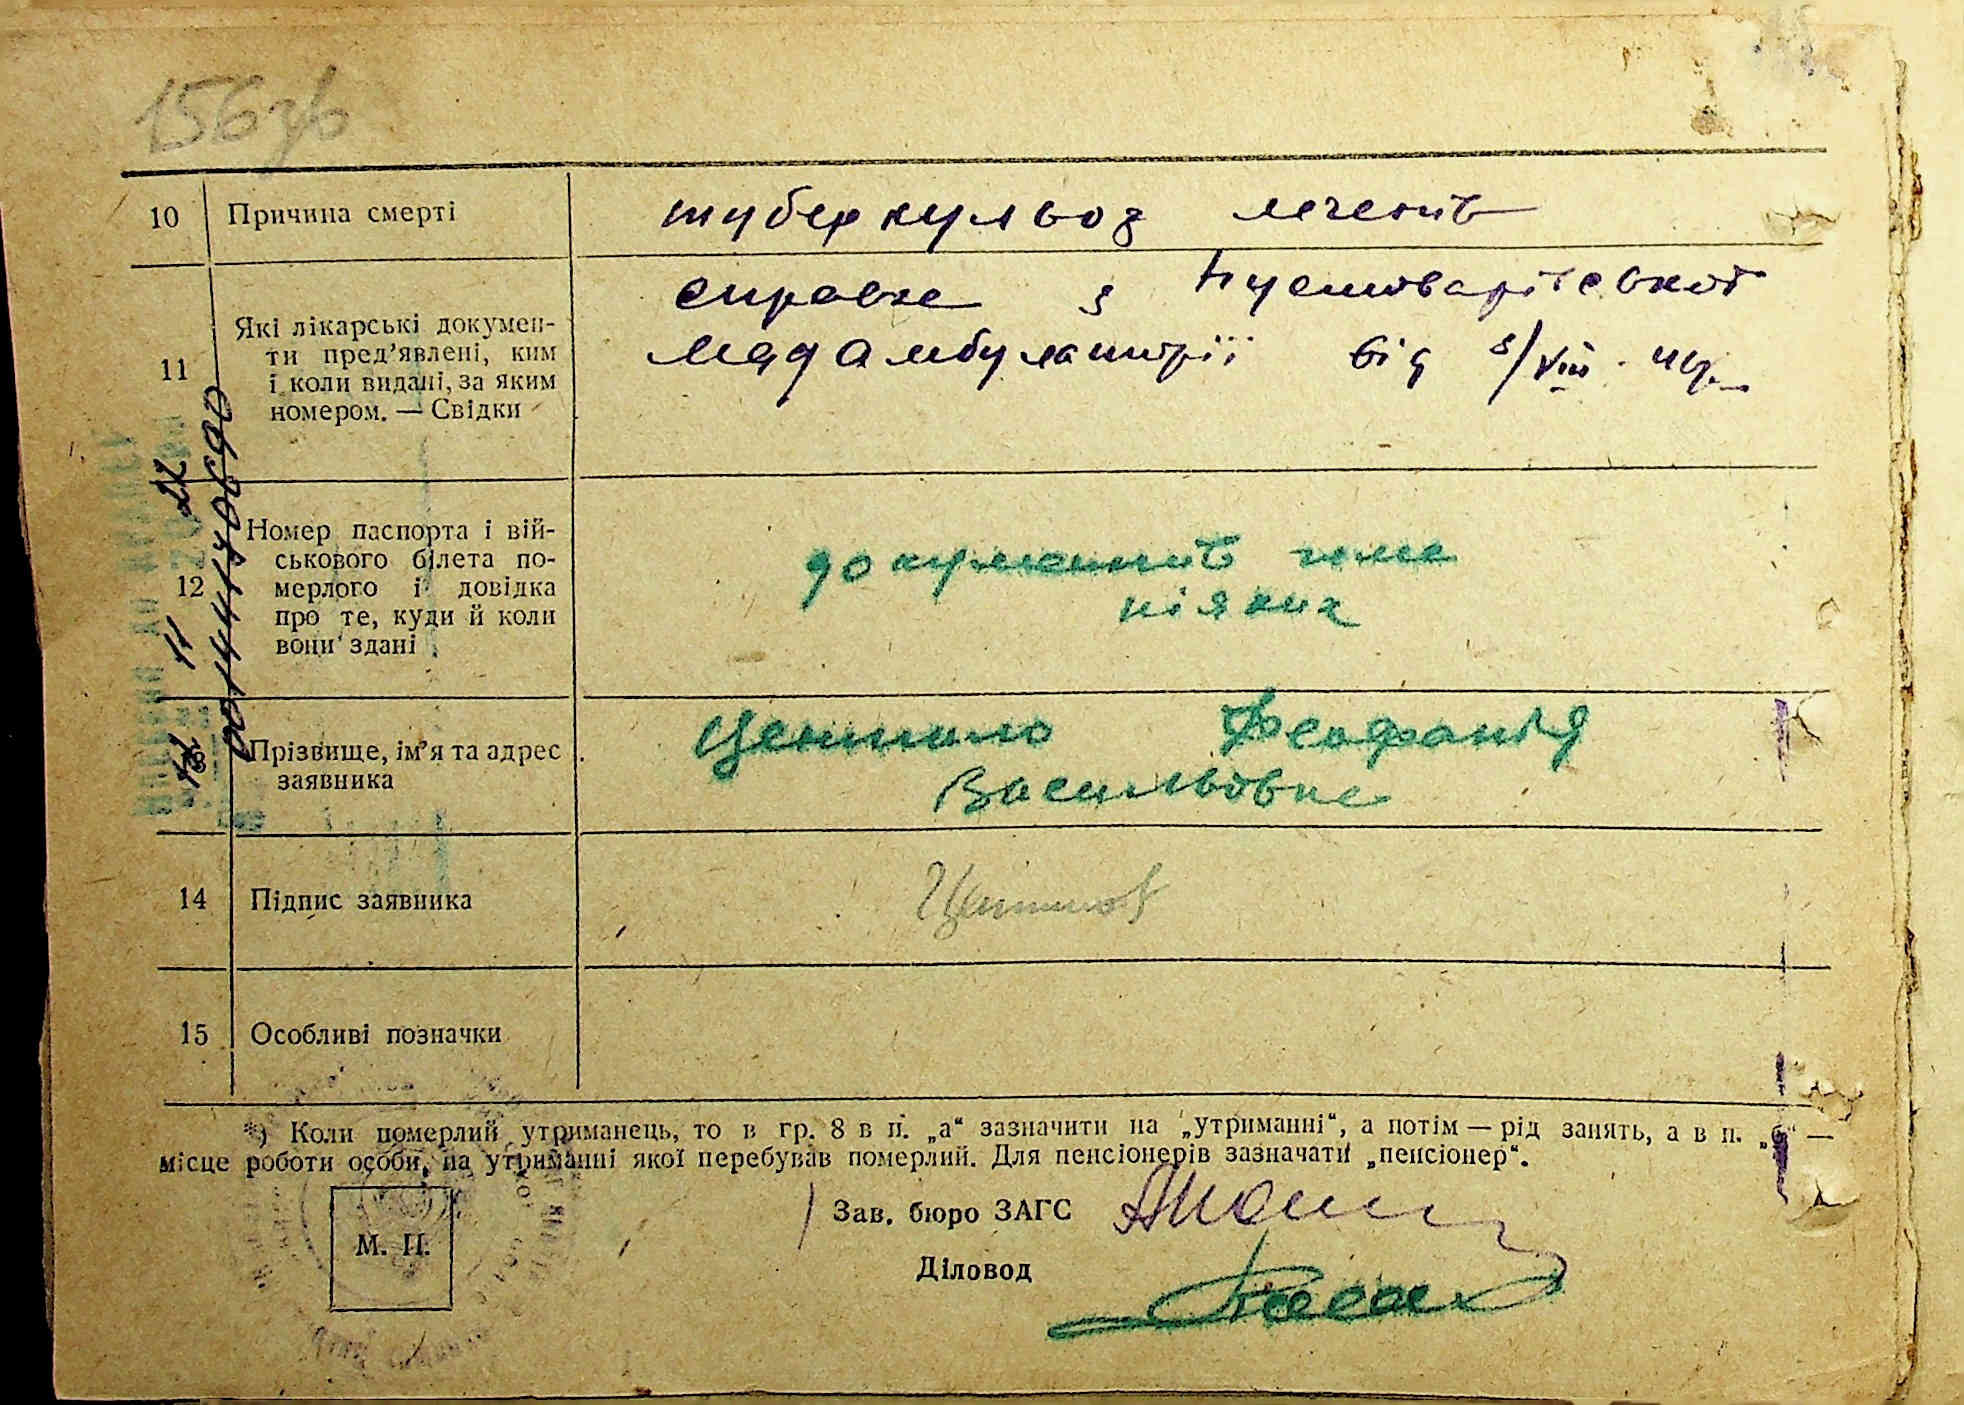 156зв
10 Причина смерті
туберкульоз легенів
11 Які лікарські докумен-
ти пред'явлені, ким
і коли видані, за яким
номером. — Свідки
справка з Пустоварівської
Медамбулаторії від 8/VIII
12 Номер паспорта і вій-
ськового білета по-
мерлого і довідка
про те, куди й коли
вони здані
документів нема
ніяких
00144170690
13 Прізвище, ім'я та адрес
заявника
Феофанія
Васильовна
14 Підпис заявника
15 Особливі позначки
*) Коли померлий утриманець, то в гр. 8 в п. „а“ зазначити на „утриманні“, а потім — рід занять, а в п. „б“ —
місце роботи особи, на утриманні якої перебував померлий. Для пенсіонерів зазначати „пенсіонер“.
М. П.
Зав. бюро ЗАГС
Діловод